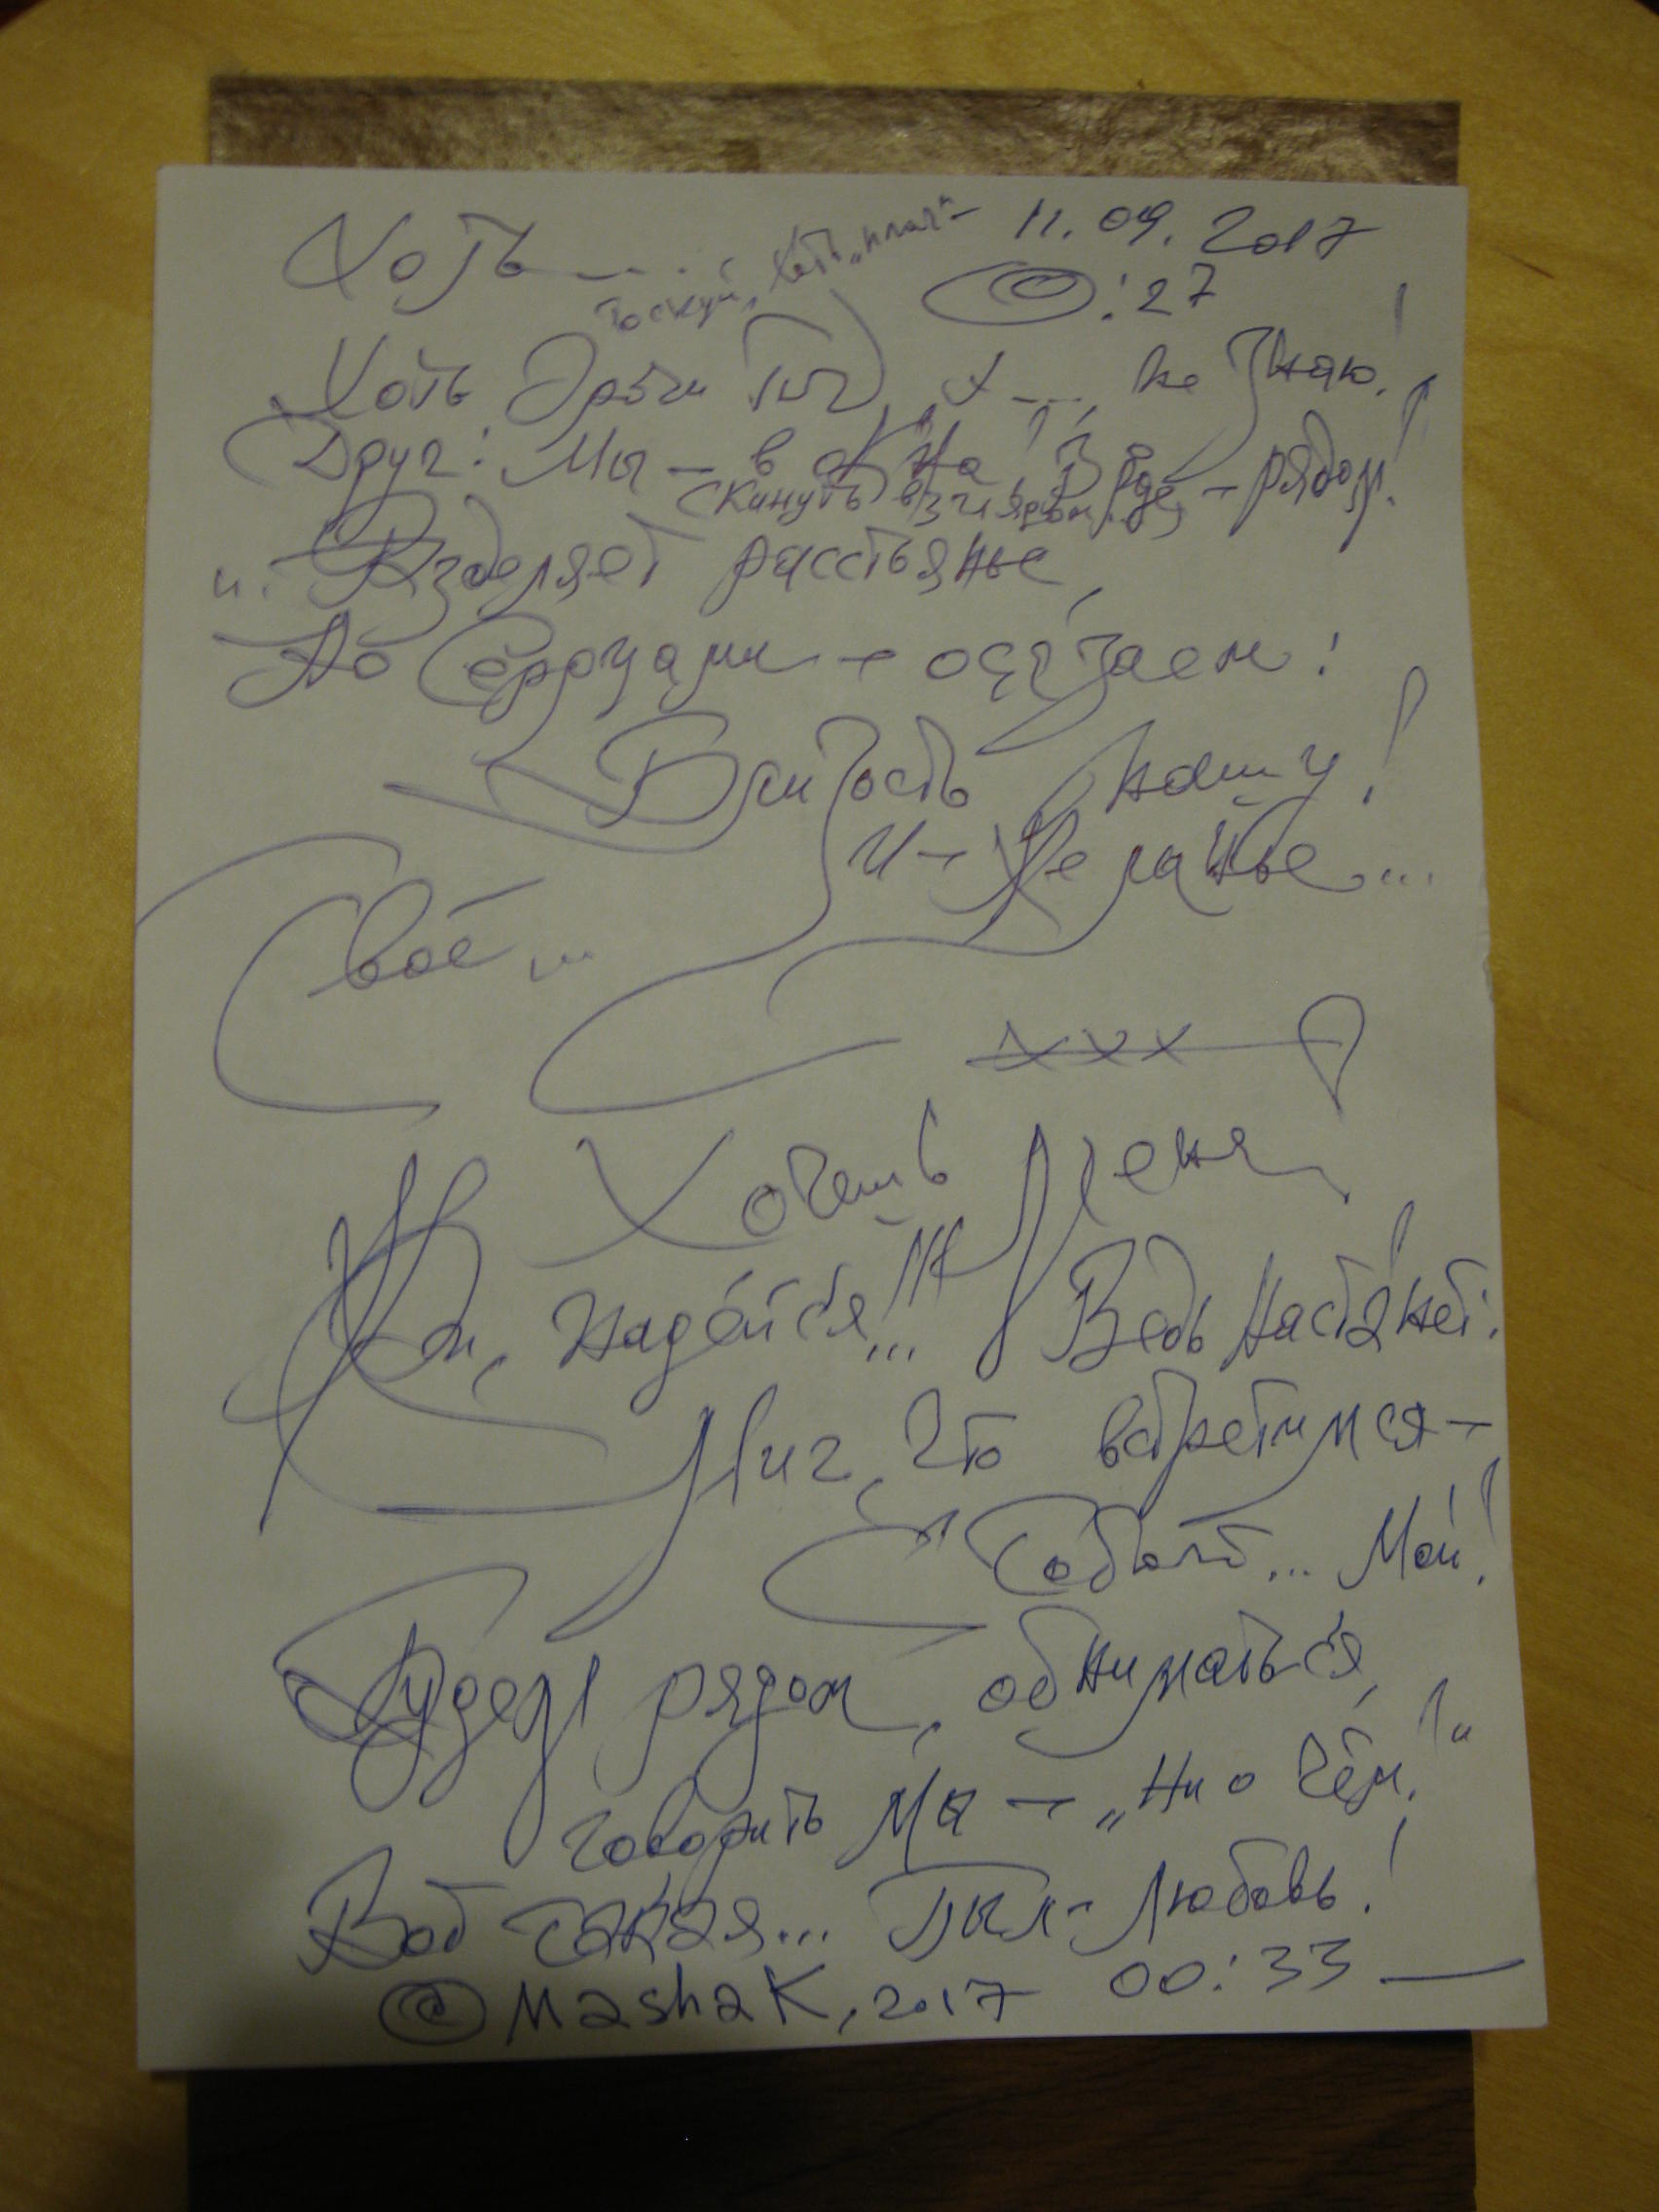 Хоть ....
тоскуй, хоть „плач“ – 11.09.2017
0:27
Хоть Х ..., не знаю!
Друг! Мы – в рядом!
(Кинуть взглядом
и. Разделяет расстоянье,
Но Сердцами – осязаем!
Близость нашу!
И – Желанье...
Своё ...
ххх
Хочешь Меня
надейся...!!! Ведь Настанет:
Миг, что встретимся –
С Тобою... Мой!
Будем рядом, обниматься,
говорить Мы – „Ни о Чём!“
Вот такая... Пыл-Любовь!
00:33 —
@ MashaK, 2017